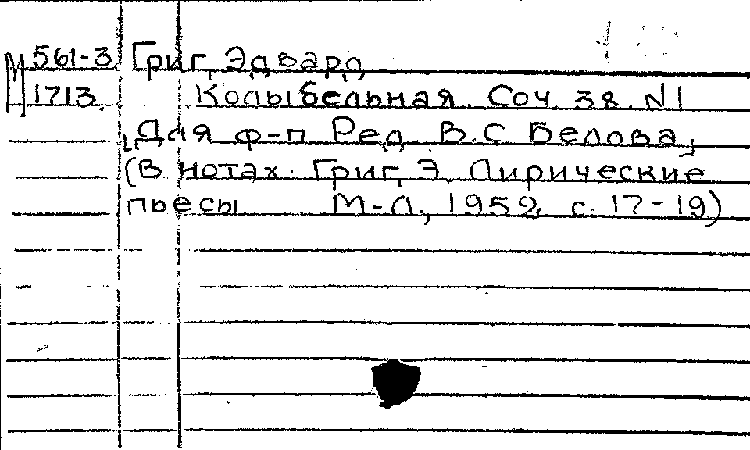 М 561-3 Григ, Эдвард
1713. Колыбельная. Соч. 38. №1
[Для ф-п Ред. В.С Белова]
(В нотах: Григ, Э. Лирические
пьесы М-Л, 1952, с. 17-19)